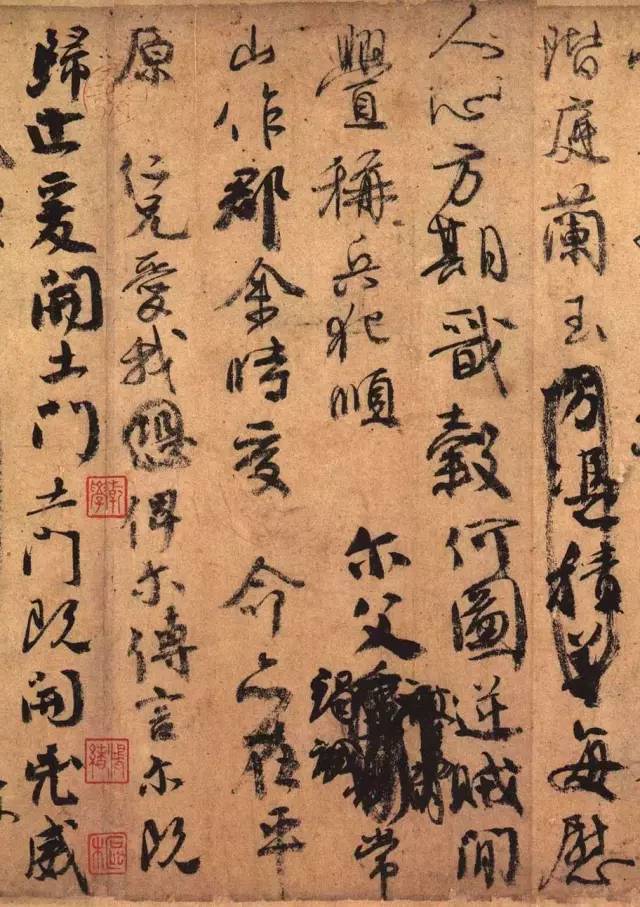 階庭蘭玉方憑積善每慰
人心方期戩穀何圖逆賊閒
釁稱兵犯順爾父竭誠常
山作郡余時受命亦在平
原仁兄愛我恐俾爾傳言爾既
歸止爰開土門土門既開凶威